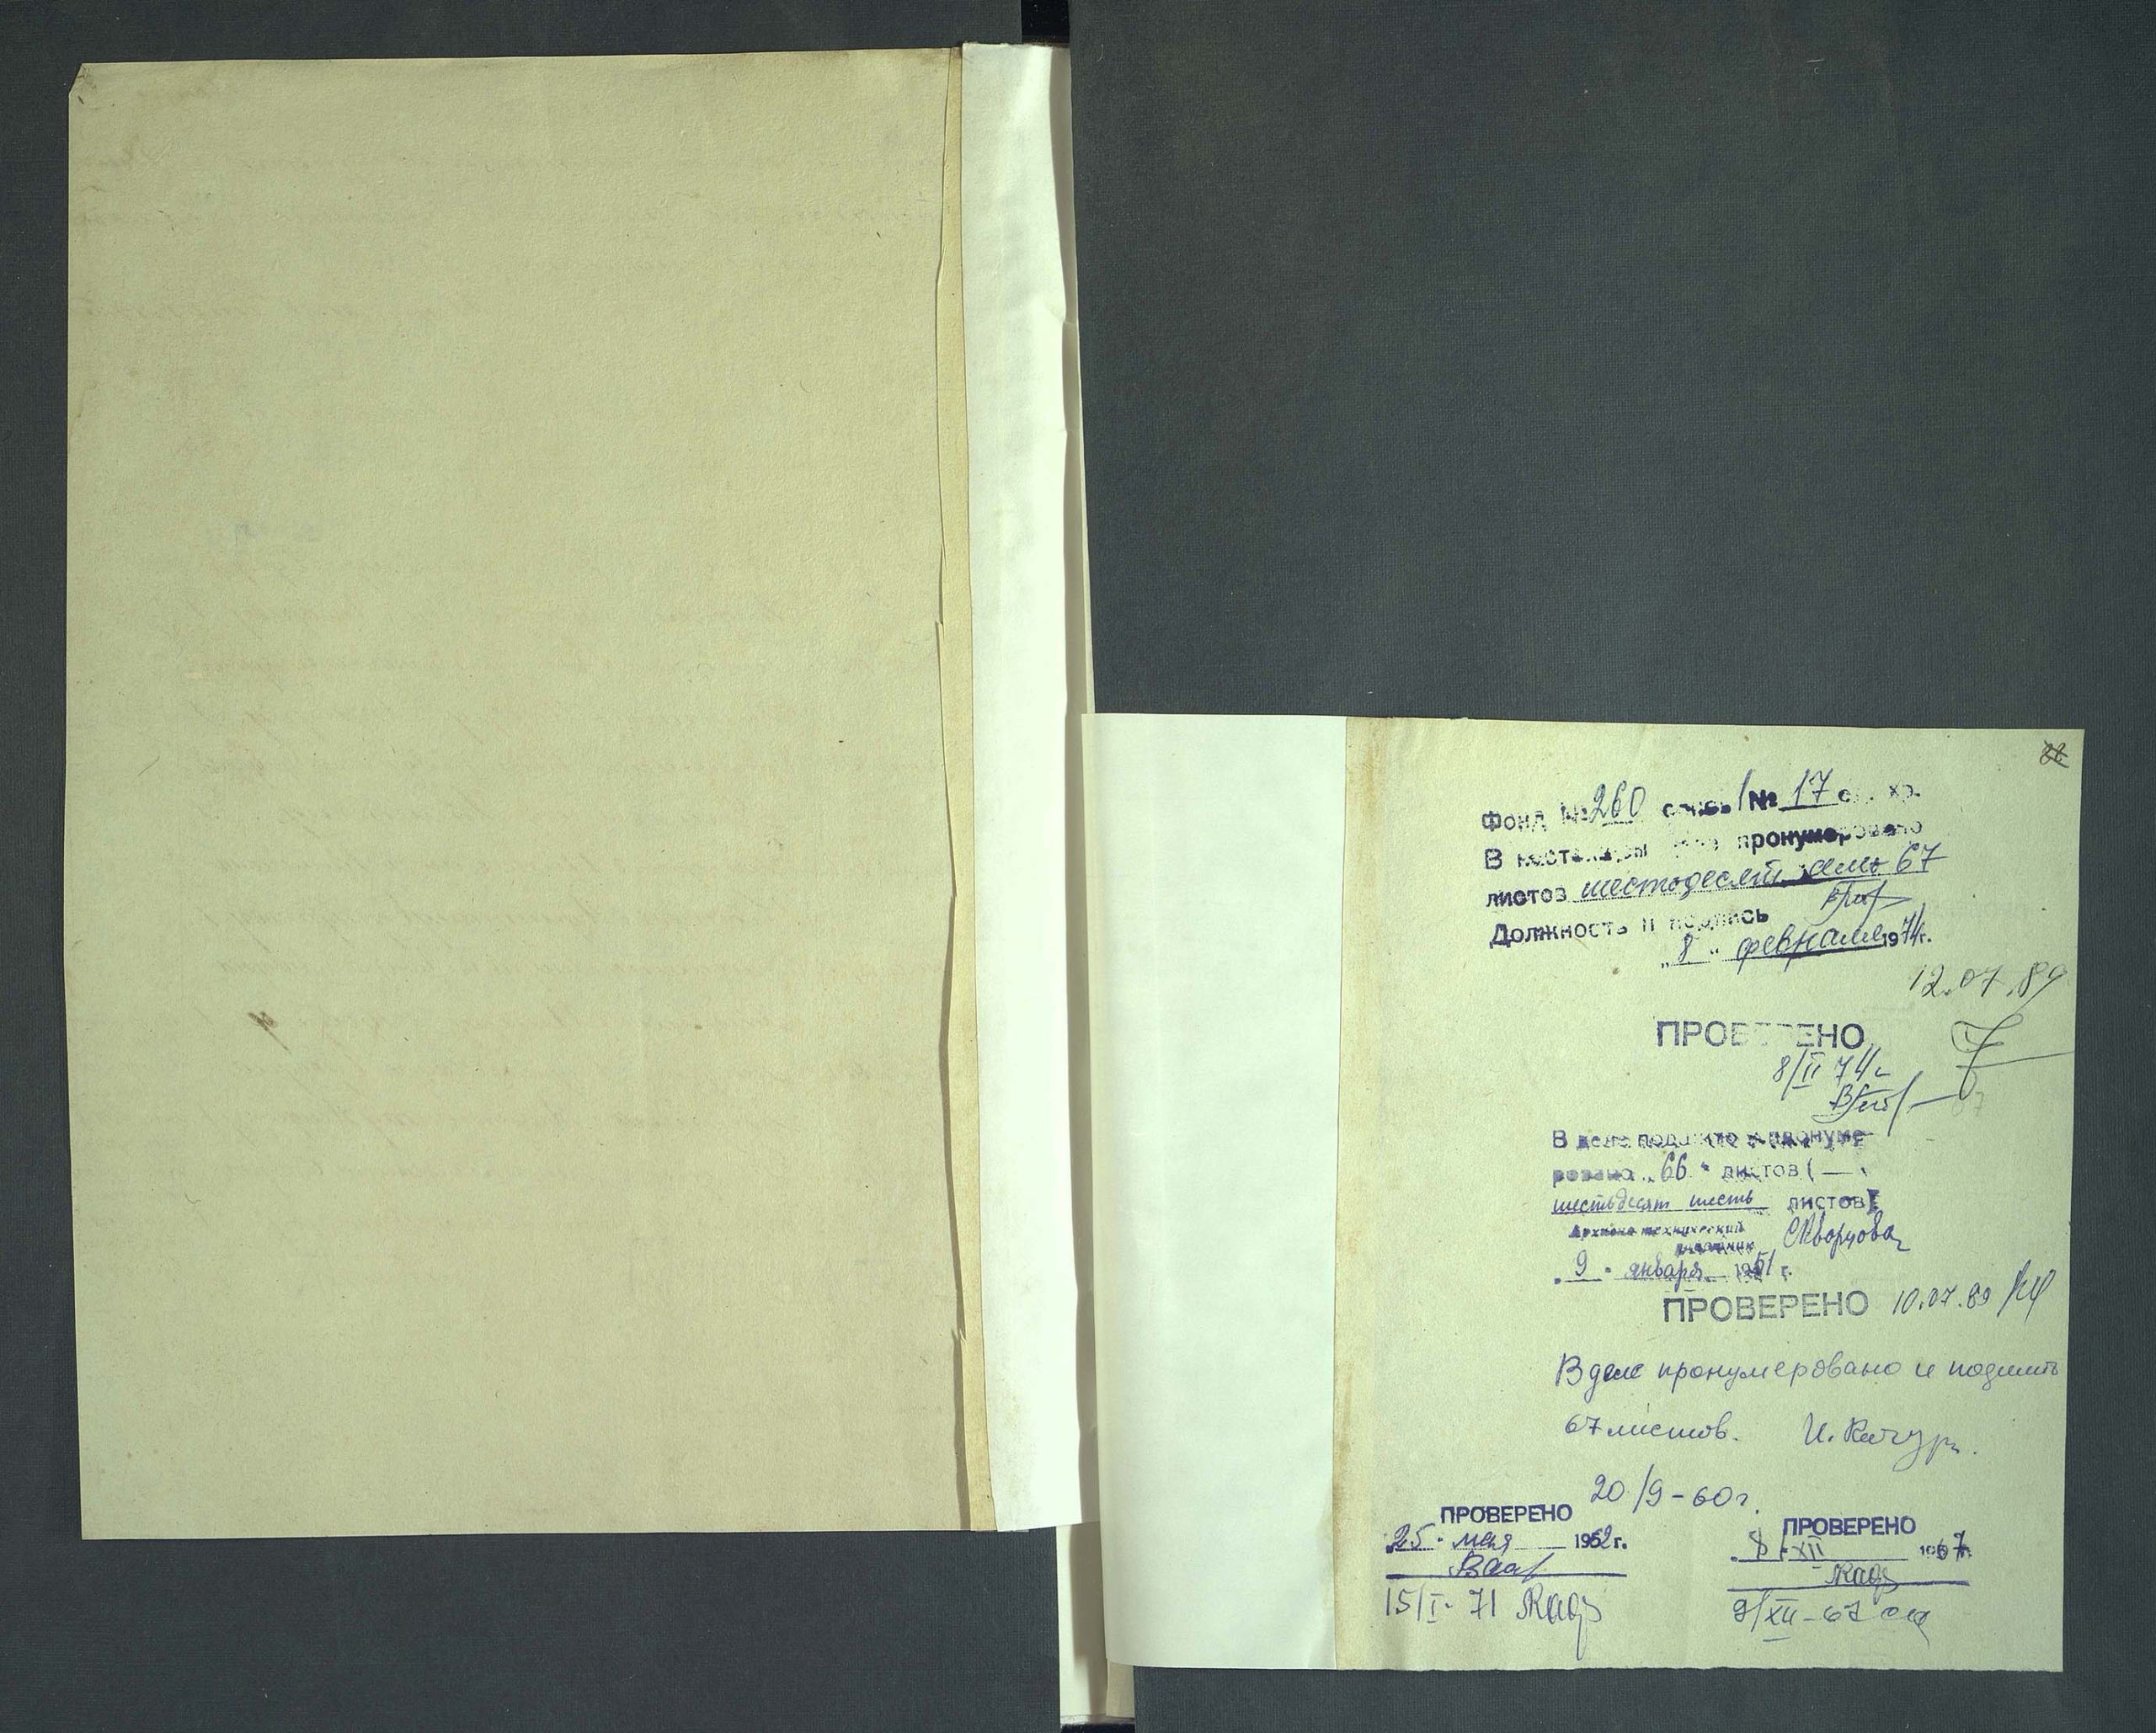 Фонд №260 опись 1 № 17 ед. хр.
В настоящем деле пронумеровано
листов шестьдесят семь 67
Должность и подпись
„8“ февраля 1974г.
12.07.89
ПРОВЕРЕНО
8/II 74г
В деле подшито и пронуме
ровано „66“ листов ( —
шестьдесят шесть листов)
Архивно технический
Скворцова
„9“ января 1951 г.
ПРОВЕРЕНО 10.07.89
В деле пронумеровано и подшито
67 листов. И. Качур
20/9-60г.
ПРОВЕРЕНО
„25“ мая 1962г.
15/I- 71
ПРОВЕРЕНО
„8“ XII 1967г.
9/XII-67